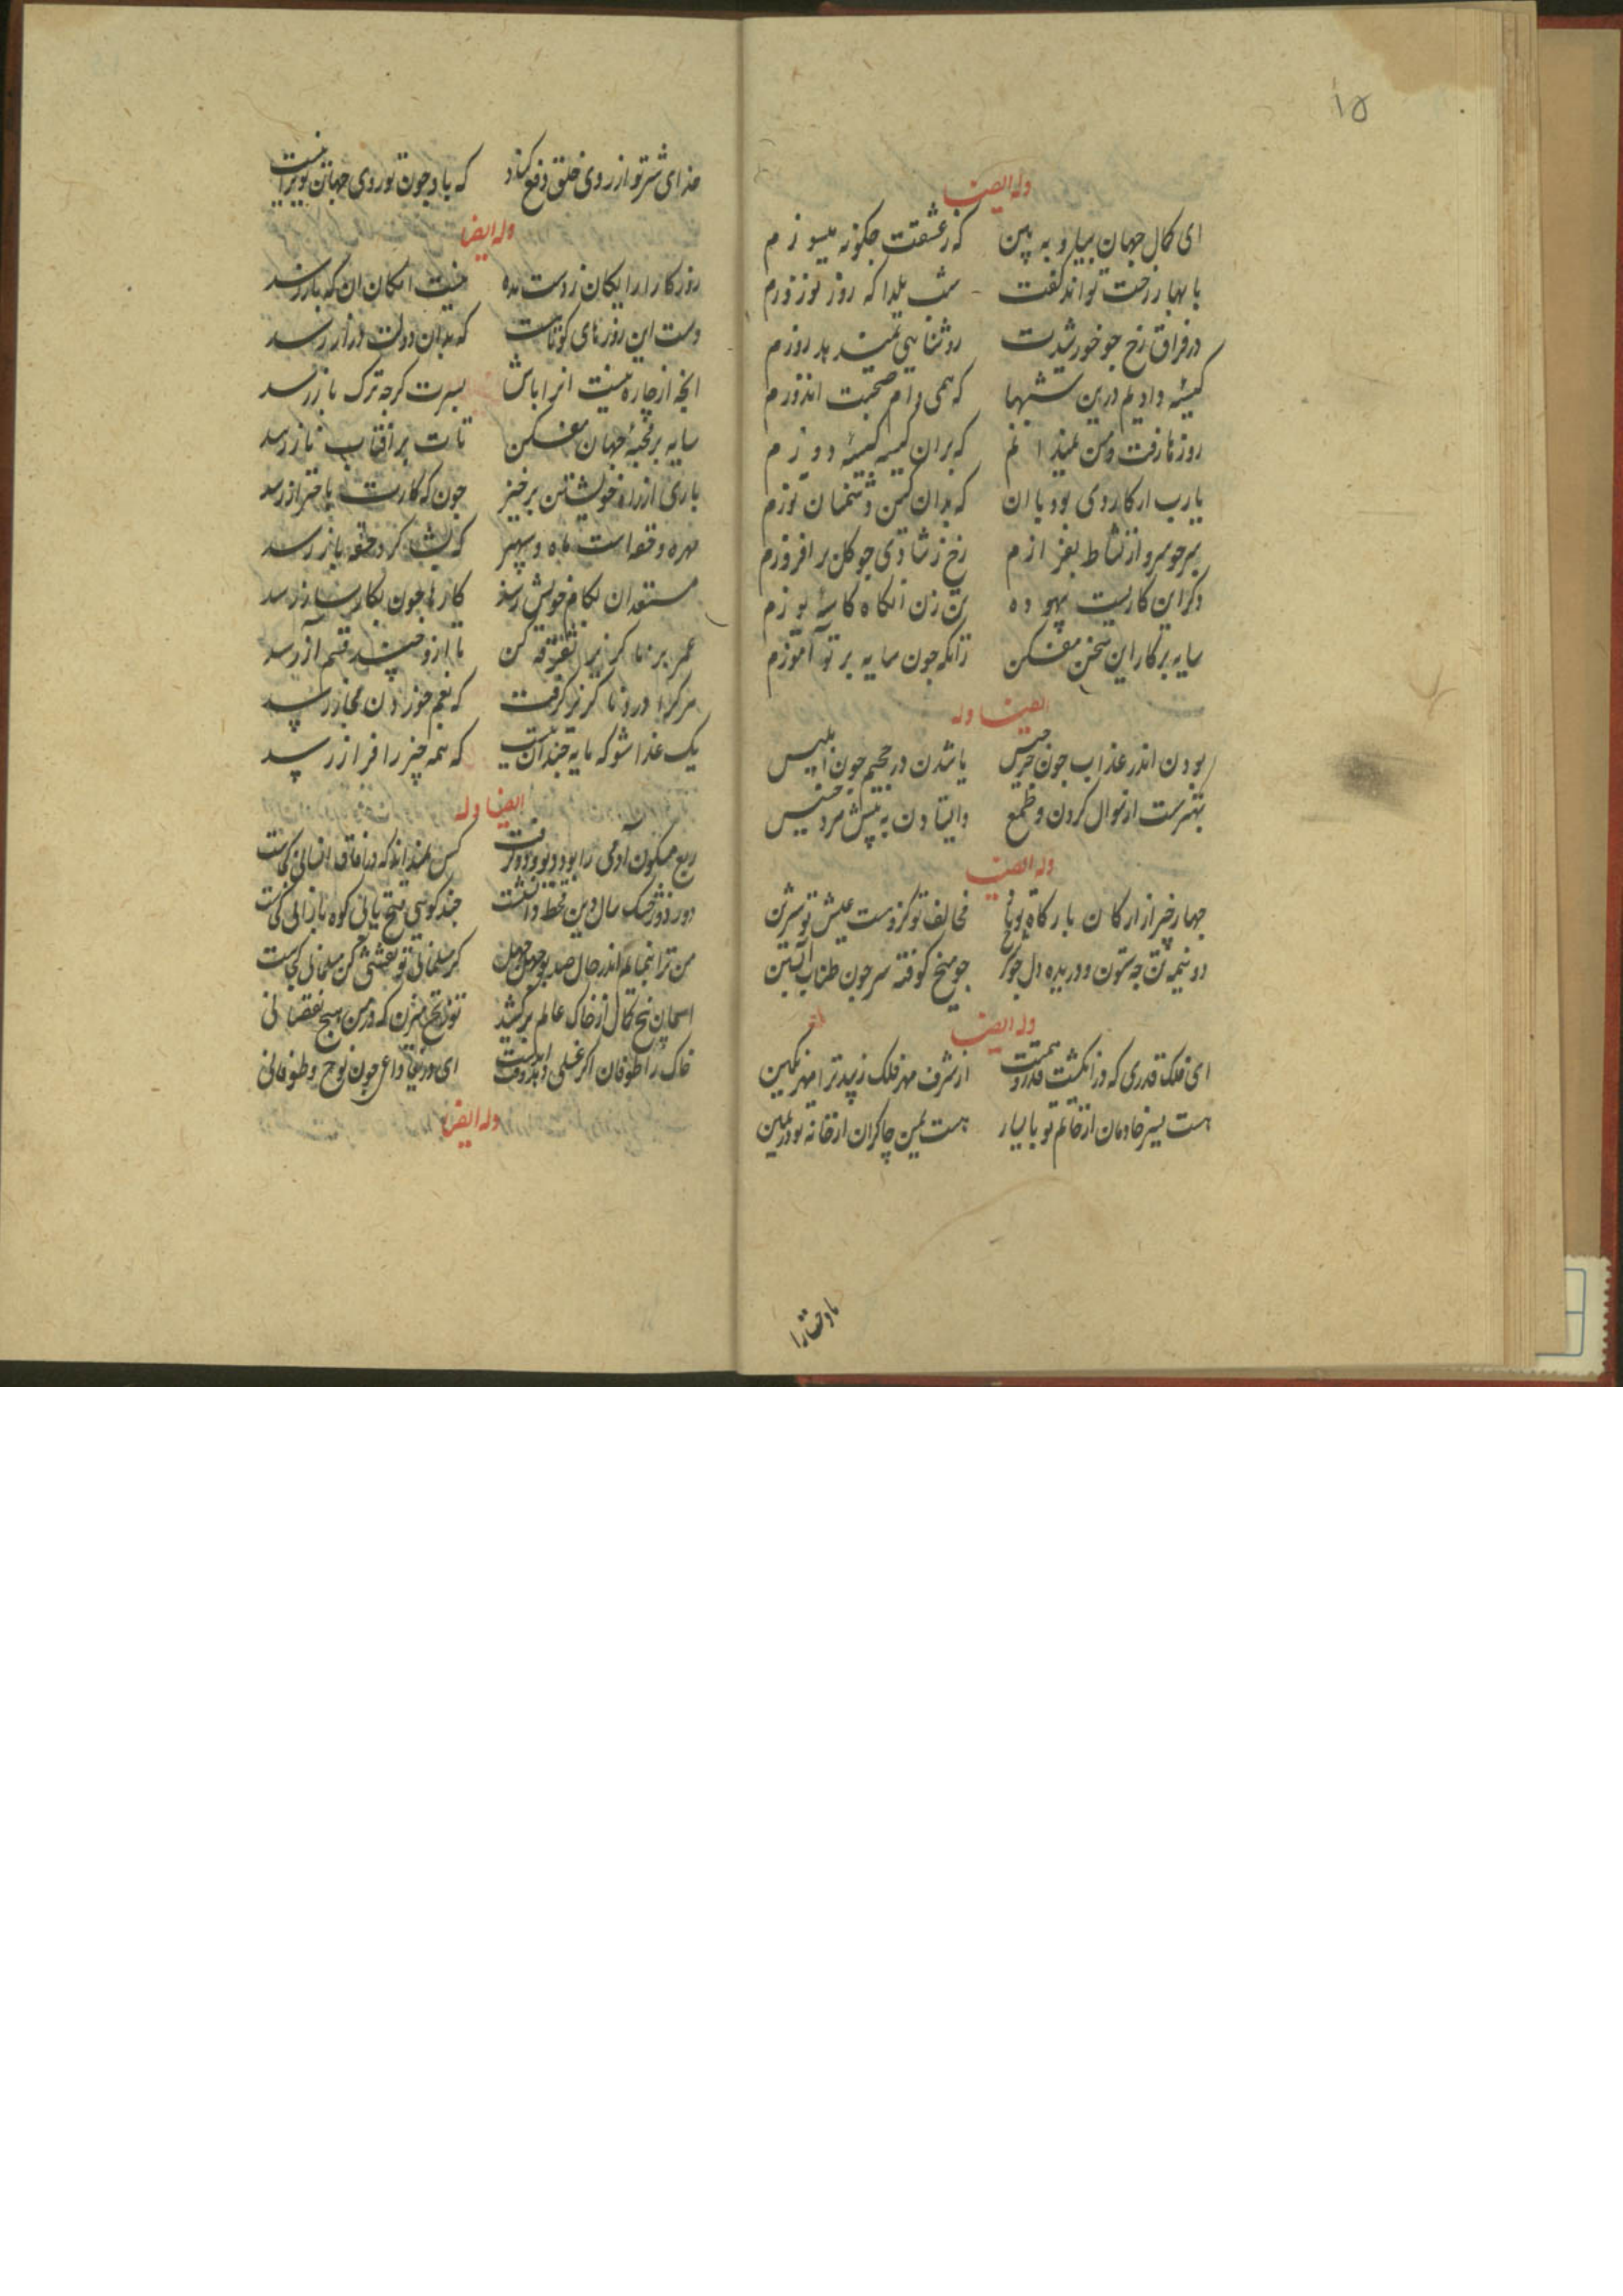 ۱۵
وله ایضا
ای کمال جهان بیا و به بین که ز عشقت چکونه میسوزم
با بهار رخت تواند کفت شب یلدا که روز نوروزم
در فراق رخ چو خورشیدت روشنایی نمیدهد روزم
کیسهٔ دادیم درین شبها که همی وام صحبت اندوزم
روزها رفت و من نمیدانم که بران کیسه کیسهٔ دوزم
یارب ار کار روی بود با ان که بدان کین دشمنان توزم
سر چو سرو از نشاط بفرازم رخ ز شادی چو کل برافروزم
وکر این کاریست بیهوده
سایه بر کار این سخن مفکن زانکه چون سایه بر تو آموزم
ایضا وله
بودن اندر عذاب چون جرجیس یا شدن در جحیم چون ابلیس
بهترست از سوال کردن و طمع وایستادن به پیش مرد خسیس
وله ایضا
چهار چیز از ارکان بارکاه تو باد مخالف تو کزوست عیش تو شیرین
دو نیمه تن چو ستون و دریده دل چو شرج چو میخ کوفته سر چون طناب
وله ایضا
ای فلک قدری که در انکشت قدر و همتت از شرف مهر فلک زیبد ترا مهر نکین
هست یسر خادمان از خاتم تو با یسار هست یمن چاکران از خانه تو در یمین
بادختارا
خدای شر تو از روی خلق دفع کناد که با وجود تو روی جهان
وله ایضا
روزکار را رایکان ز دست مده نیست امکان ان که باز رسد
دست این روزهای کوتاهت که بدان دولت دراز رسد
انچه از چاره نیست انرا باش بسرت کرچه ترک باز رسد
سایه بر کنبد جهان مفکن تات بر آفتاب ناز رسد
باری از راه خویشتن برخیز چون که کارت باحتراز رسد
مهره و حقه است ماه و سپهر که بشب کرد حقه باز رسد
مستعدان بکام خویش رسند کارها چون بکارساز رسد
عمر بر ناکزیر تفرقه کن تا ازو چند قسم آز رسد
هر که را درد ناکزیر کرفت که بغم خوردن مجاز رسد
یک غذا شو که مایه چندان نیست که همه چیز را فراز رسد
ایضا وله
ربع مسکون آدمی را بود دیو و دد کرفت کس نمیداند که در آفاق انسانی کجاست
دور دور خشک سال دین و قحط دانشست چند کویی فتح یابی کوه بارانی کجاست
من ترا بنمایم اندر حال صد بوجهل جهل کر مسلمانی تو تعیین کن مسلمانی کجاست
اسمان بیخ کمال از خاک عالم برکشید تو زنخ میزن که در من هیچ نقصانی
خاک را طوفان اکر غسلی دهد وقت امدست ای دریغا داعی چون نوح و طوفانی
وله ایضا